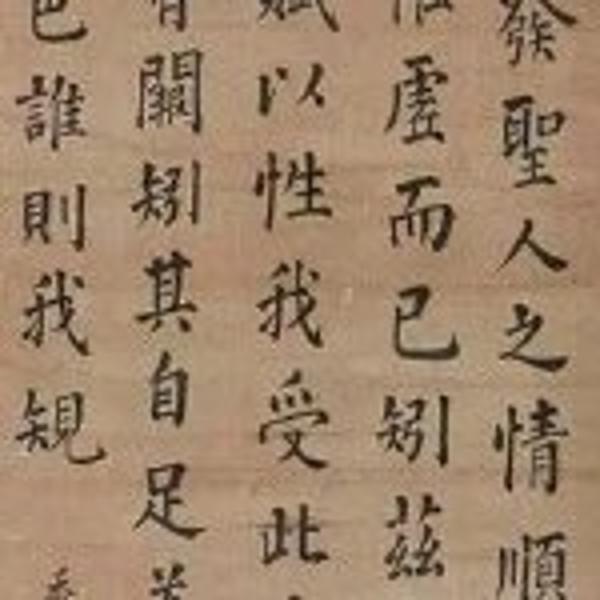 發聖人之情順
惟虛而已矧茲
賦以性我受此
有關矧其自足
色誰則我規